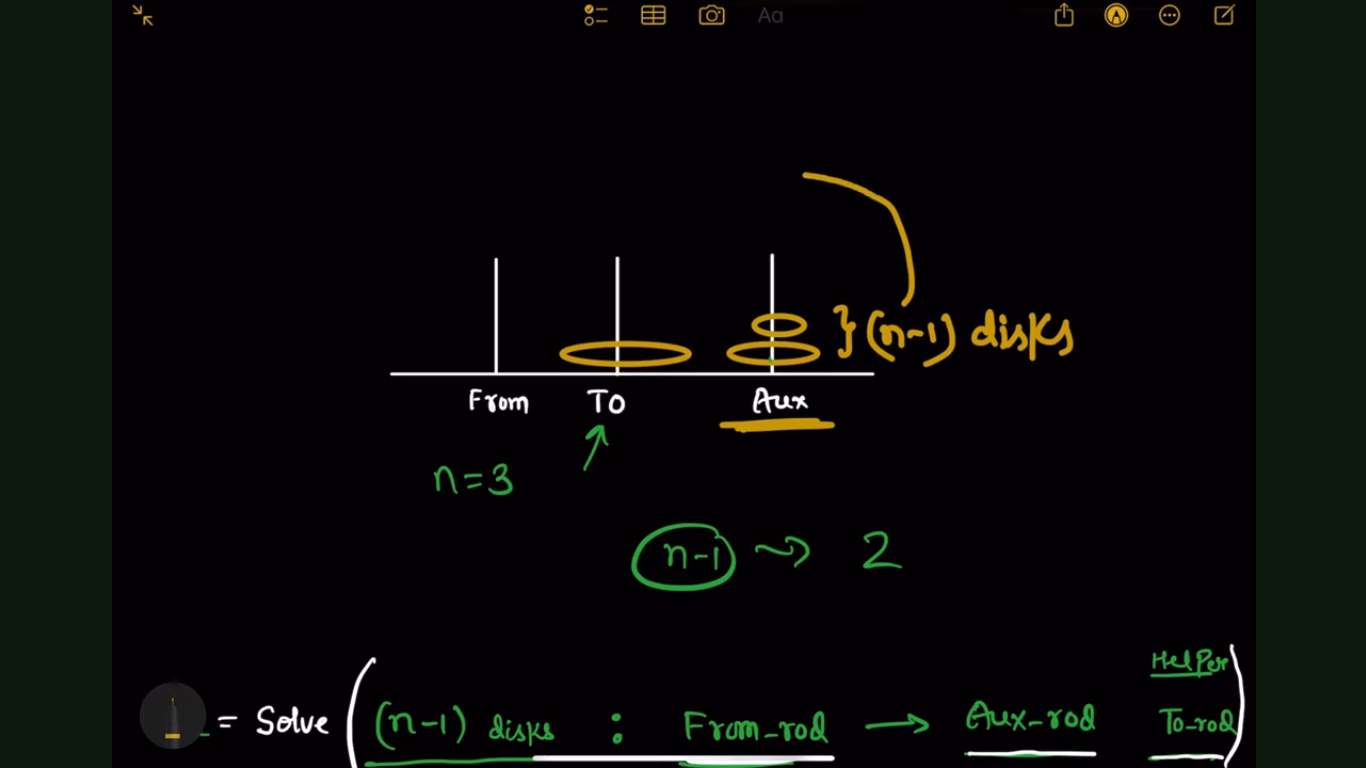 Aa
} (n-1) disks
From To Aux
n=3
n-1 → 2
Helper
= Solve ( (n-1) disks : From_rod → Aux_rod To_rod )